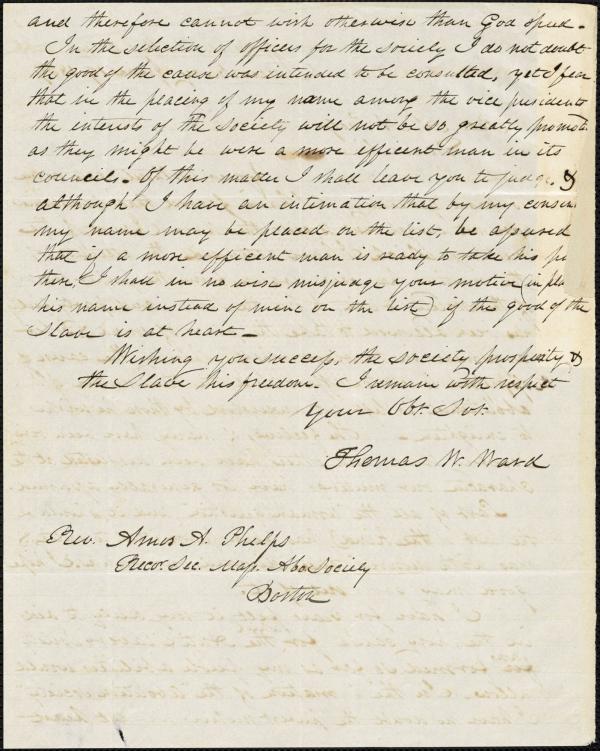 and therefore cannot wish otherwise than God speed.
In the selection of officers for the society I do not doubt
the good of the cause was intended to be consulted, yet I fear
that in the placing of my name among the vice presidents
the interests of the society will not be so greatly promot
as they might be were a more efficent man in its
councils. Of this matter I shall leave you to judge. &
although I have an intimation that by my consen
my name may be placed on the list, be assured
that if a more efficent man is ready to take his pl
there, I shall in no wise misjudge your motive (in pla
his name instead of mine on the list) if the good of the
Slave is at heart.
Wishing you success, the society prosperity &
the Slave his freedom. I remain with respect
Your Obt. Svt.
Thomas W. Ward
Rev. Amos A. Phelps
Recor. Sec. Mass. Abo Society
Boston